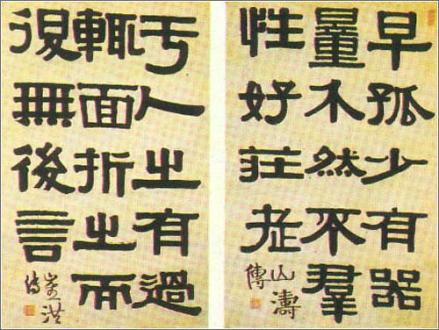 早孤少有器
量介然不羣
性好莊老
山濤
傳
于人之有過
輒面折之而
退無後言
崔洪
傳